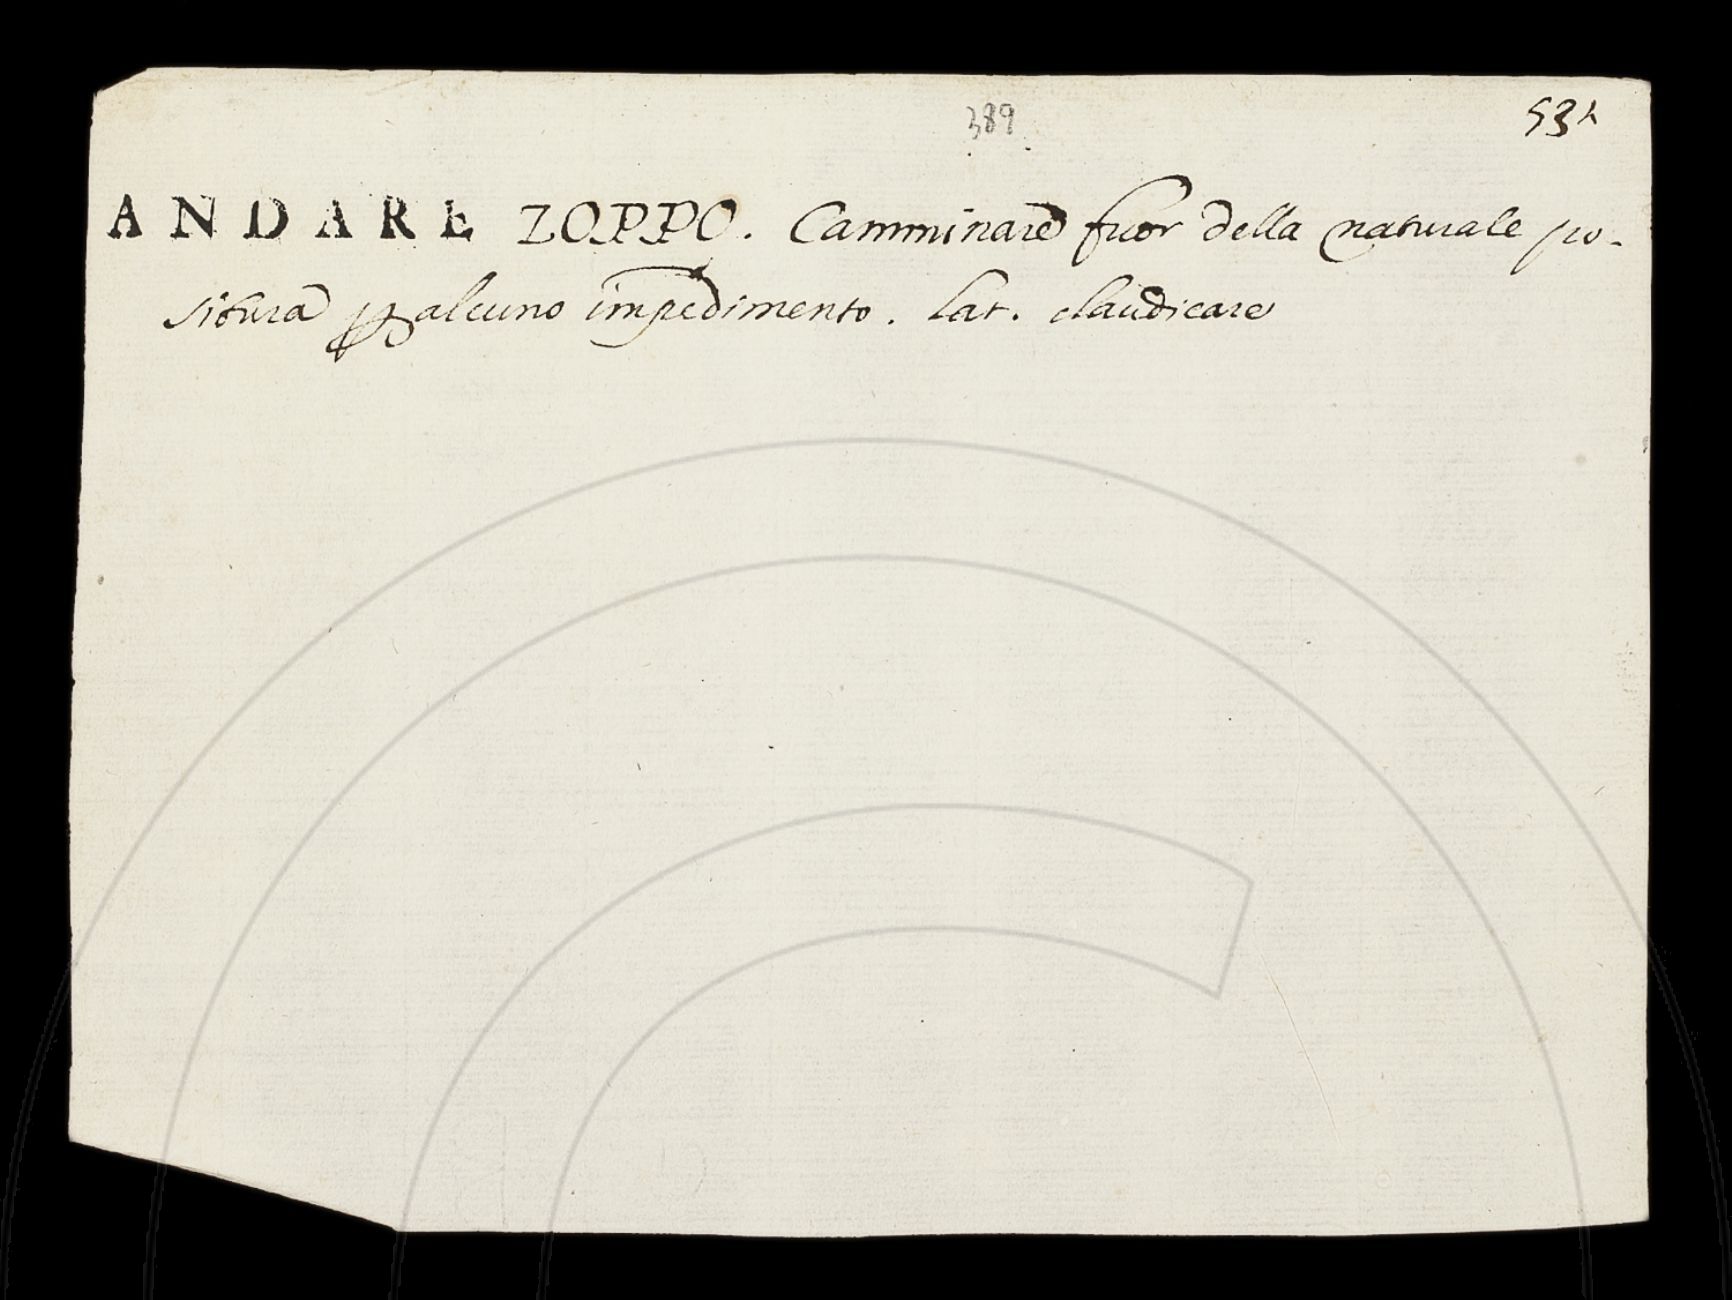 389
ANDARE ZOPPO. Camminare fuor della naturale po-
situra p alcuno impedimento. Lat. claudicare